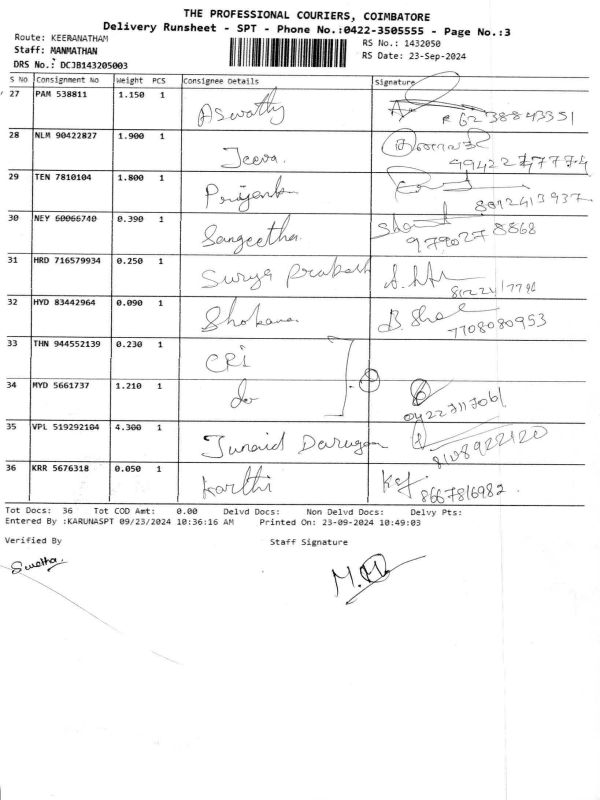 THE PROFESSIONAL COURIERS, COIMBATORE
Delivery Runsheet - SPT - Phone No.:0422-3505555 - Page No.:3
Route: KEERANATHAM
RS No.: 1432050
Staff: MANMATHAN
RS Date: 23-Sep-2024
DRS No.: DCJB143205003
S No Consignment No Weight PCS Consignee Details Signature
27 PAM 538811 1.150 1 Aswathy
6238843351
28 NLM 90422827 1.900 1 Jeeva.
29 TEN 7810104 1.800 1 Priyanka
30 NEY 60066740 0.390 1 Sangeetha.
9790278868
31 HRD 716579934 0.250 1 Surya Prakash
32 HYD 83442964 0.090 1 Shobana
7708080953
33 THN 944552139 0.230 1 CRI
34 MYD 5661737 1.210 1 do
04222117061
35 VPL 519292104 4.300 1 Junaid
8108922120
36 KRR 5676318 0.050 1 Karthi
8667816982.
Tot Docs: 36 Tot COD Amt: 0.00 Delvd Docs: Non Delvd Docs: Delvy Pts:
Entered By :KARUNASPT 09/23/2024 10:36:16 AM Printed On: 23-09-2024 10:49:03
Verified By Staff Signature
Swetha.
M.M.